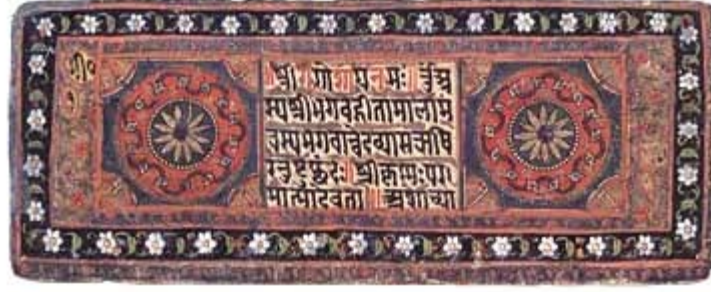 श्रीगणेशायनमः ॐअ
स्यश्रीभगवद्गीतामालाम
न्त्रस्यभगवान्वेदव्यासऋषि
रनुष्टुप्छंदः श्रीकृष्णःपर
मात्मादेवता अशोच्या